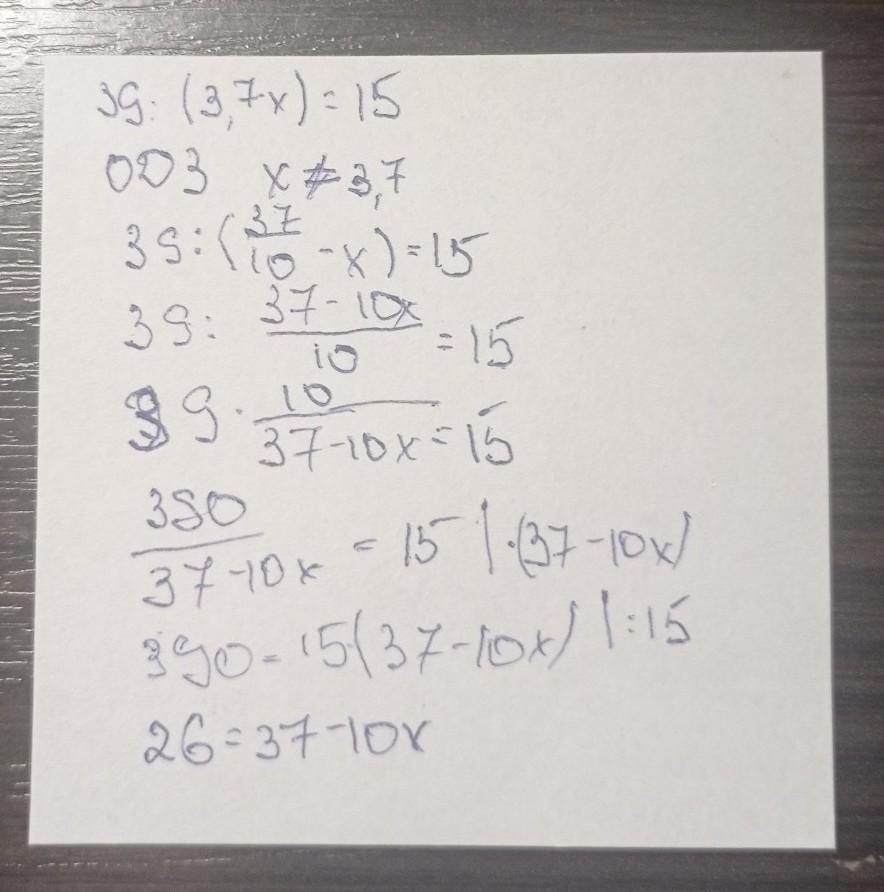 39: (3,7x) = 15
ОДЗ x ≠ 3,7
39:(37/10 - x) = 15
39: (37-10x)/10 = 15
39 · 10/(37-10x) = 15
390/(37-10x) = 15 |·(37-10x)
390 = 15(37-10x) |:15
26 = 37-10x